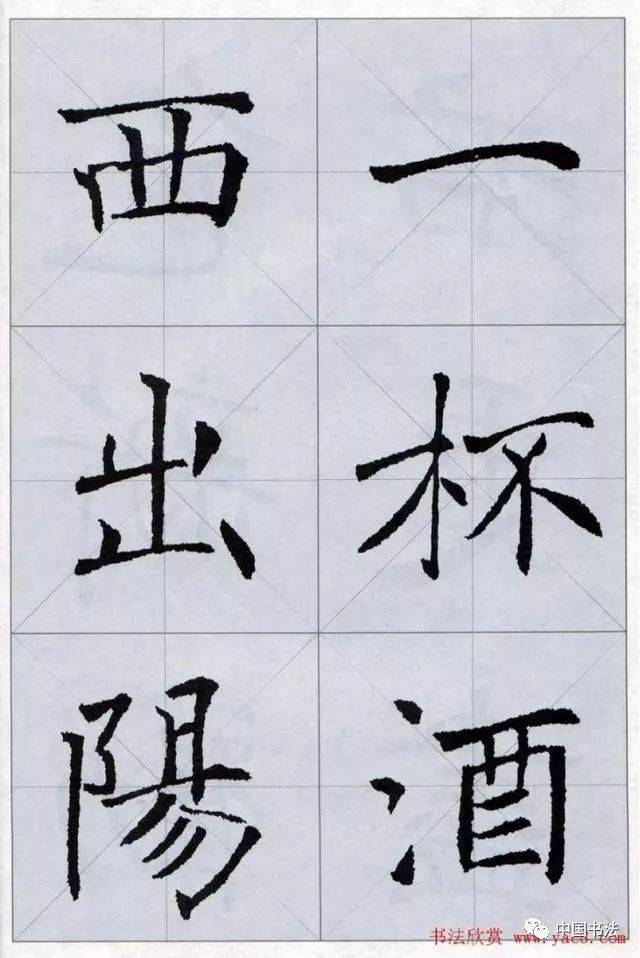 一杯酒
西出陽
中国书法
书法欣赏 www.yac8.com